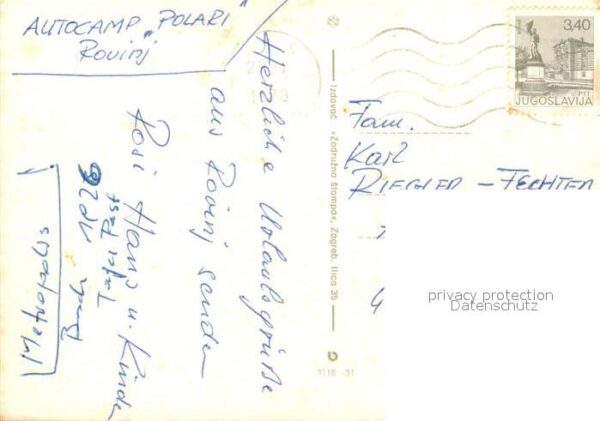 AUTOCAMP „POLARI"
Rovinj
Herzliche Urlaubsgrüße
aus Rovinj senden
Rosi Hansi u. Kinder
Metropolis
Izdavač: »Zadružna štampa«, Zagreb, Ilica 35
3,40
PTT
JUGOSLAVIJA
Fam.
Karl
RIEGLER - FECHTER
privacy protection
Datenschutz